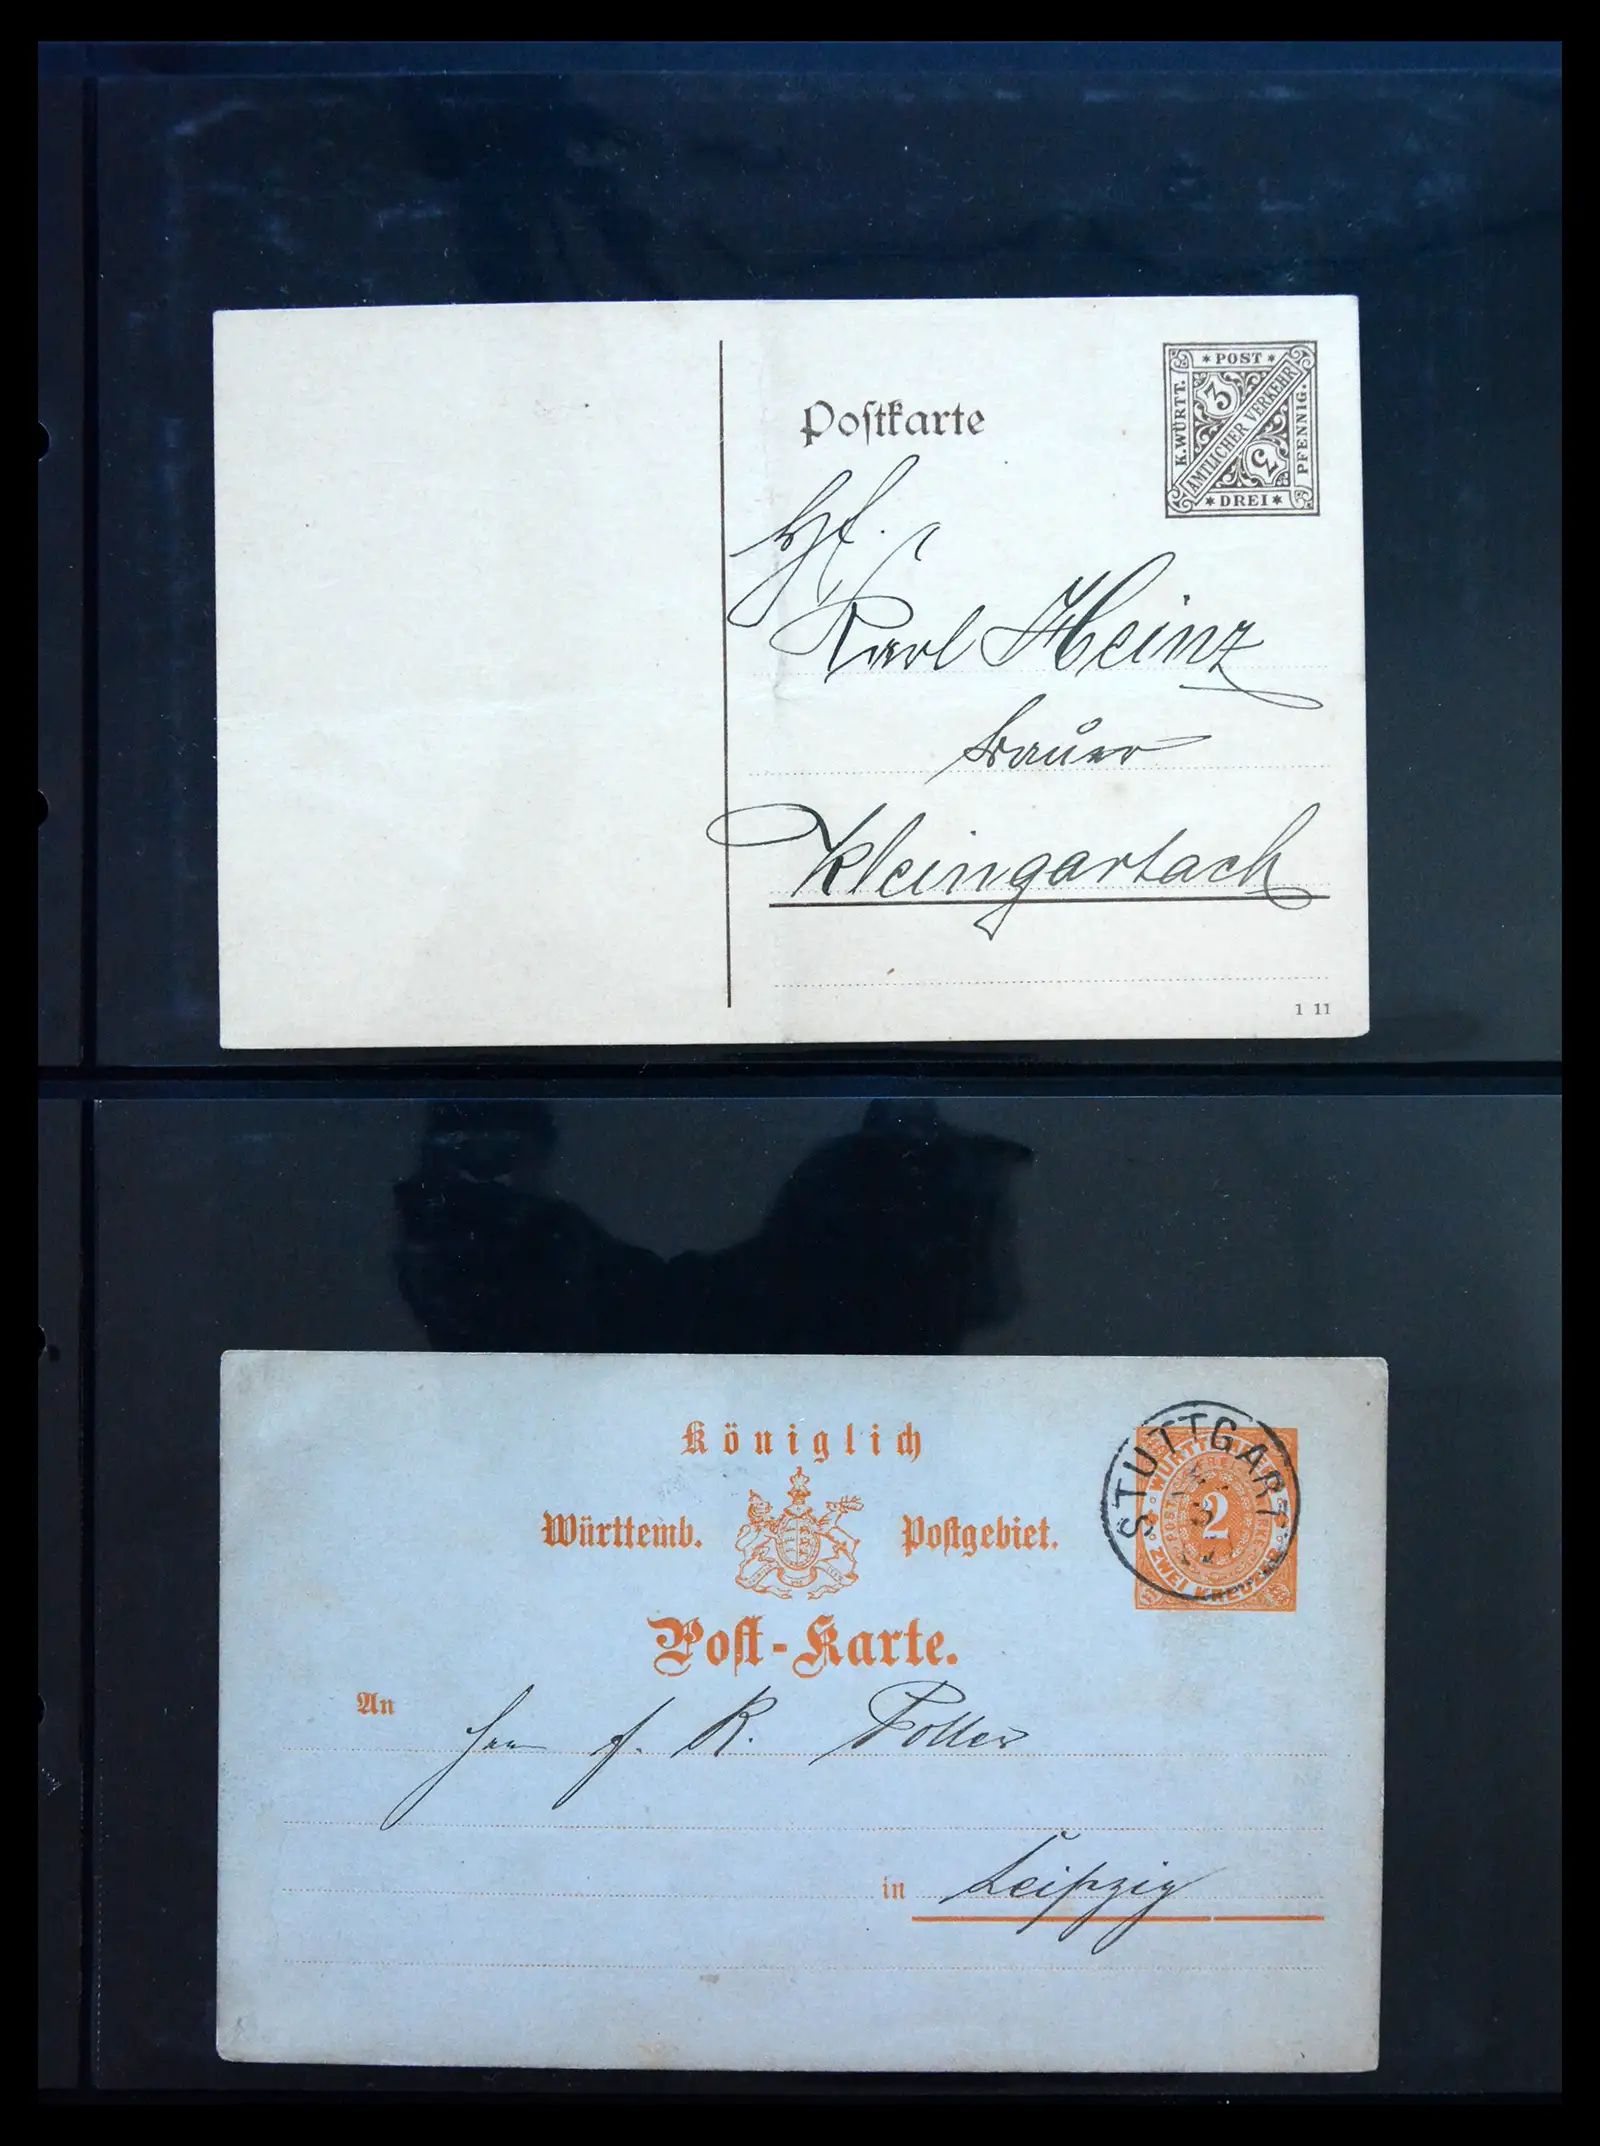 Postkarte
* POST *
K.WÜRTT.
3
AMTLICHER VERKEHR
3
PFENNIG.
* DREI *
Karl Heinz
Bauer
Kleingartach
1 11
Königlich
Württemb. Postgebiet.
STUTTGART
WÜRTTEMBERG
2
ZWEI KREUZER
Post-Karte.
An Herrn J. R.
in Leipzig